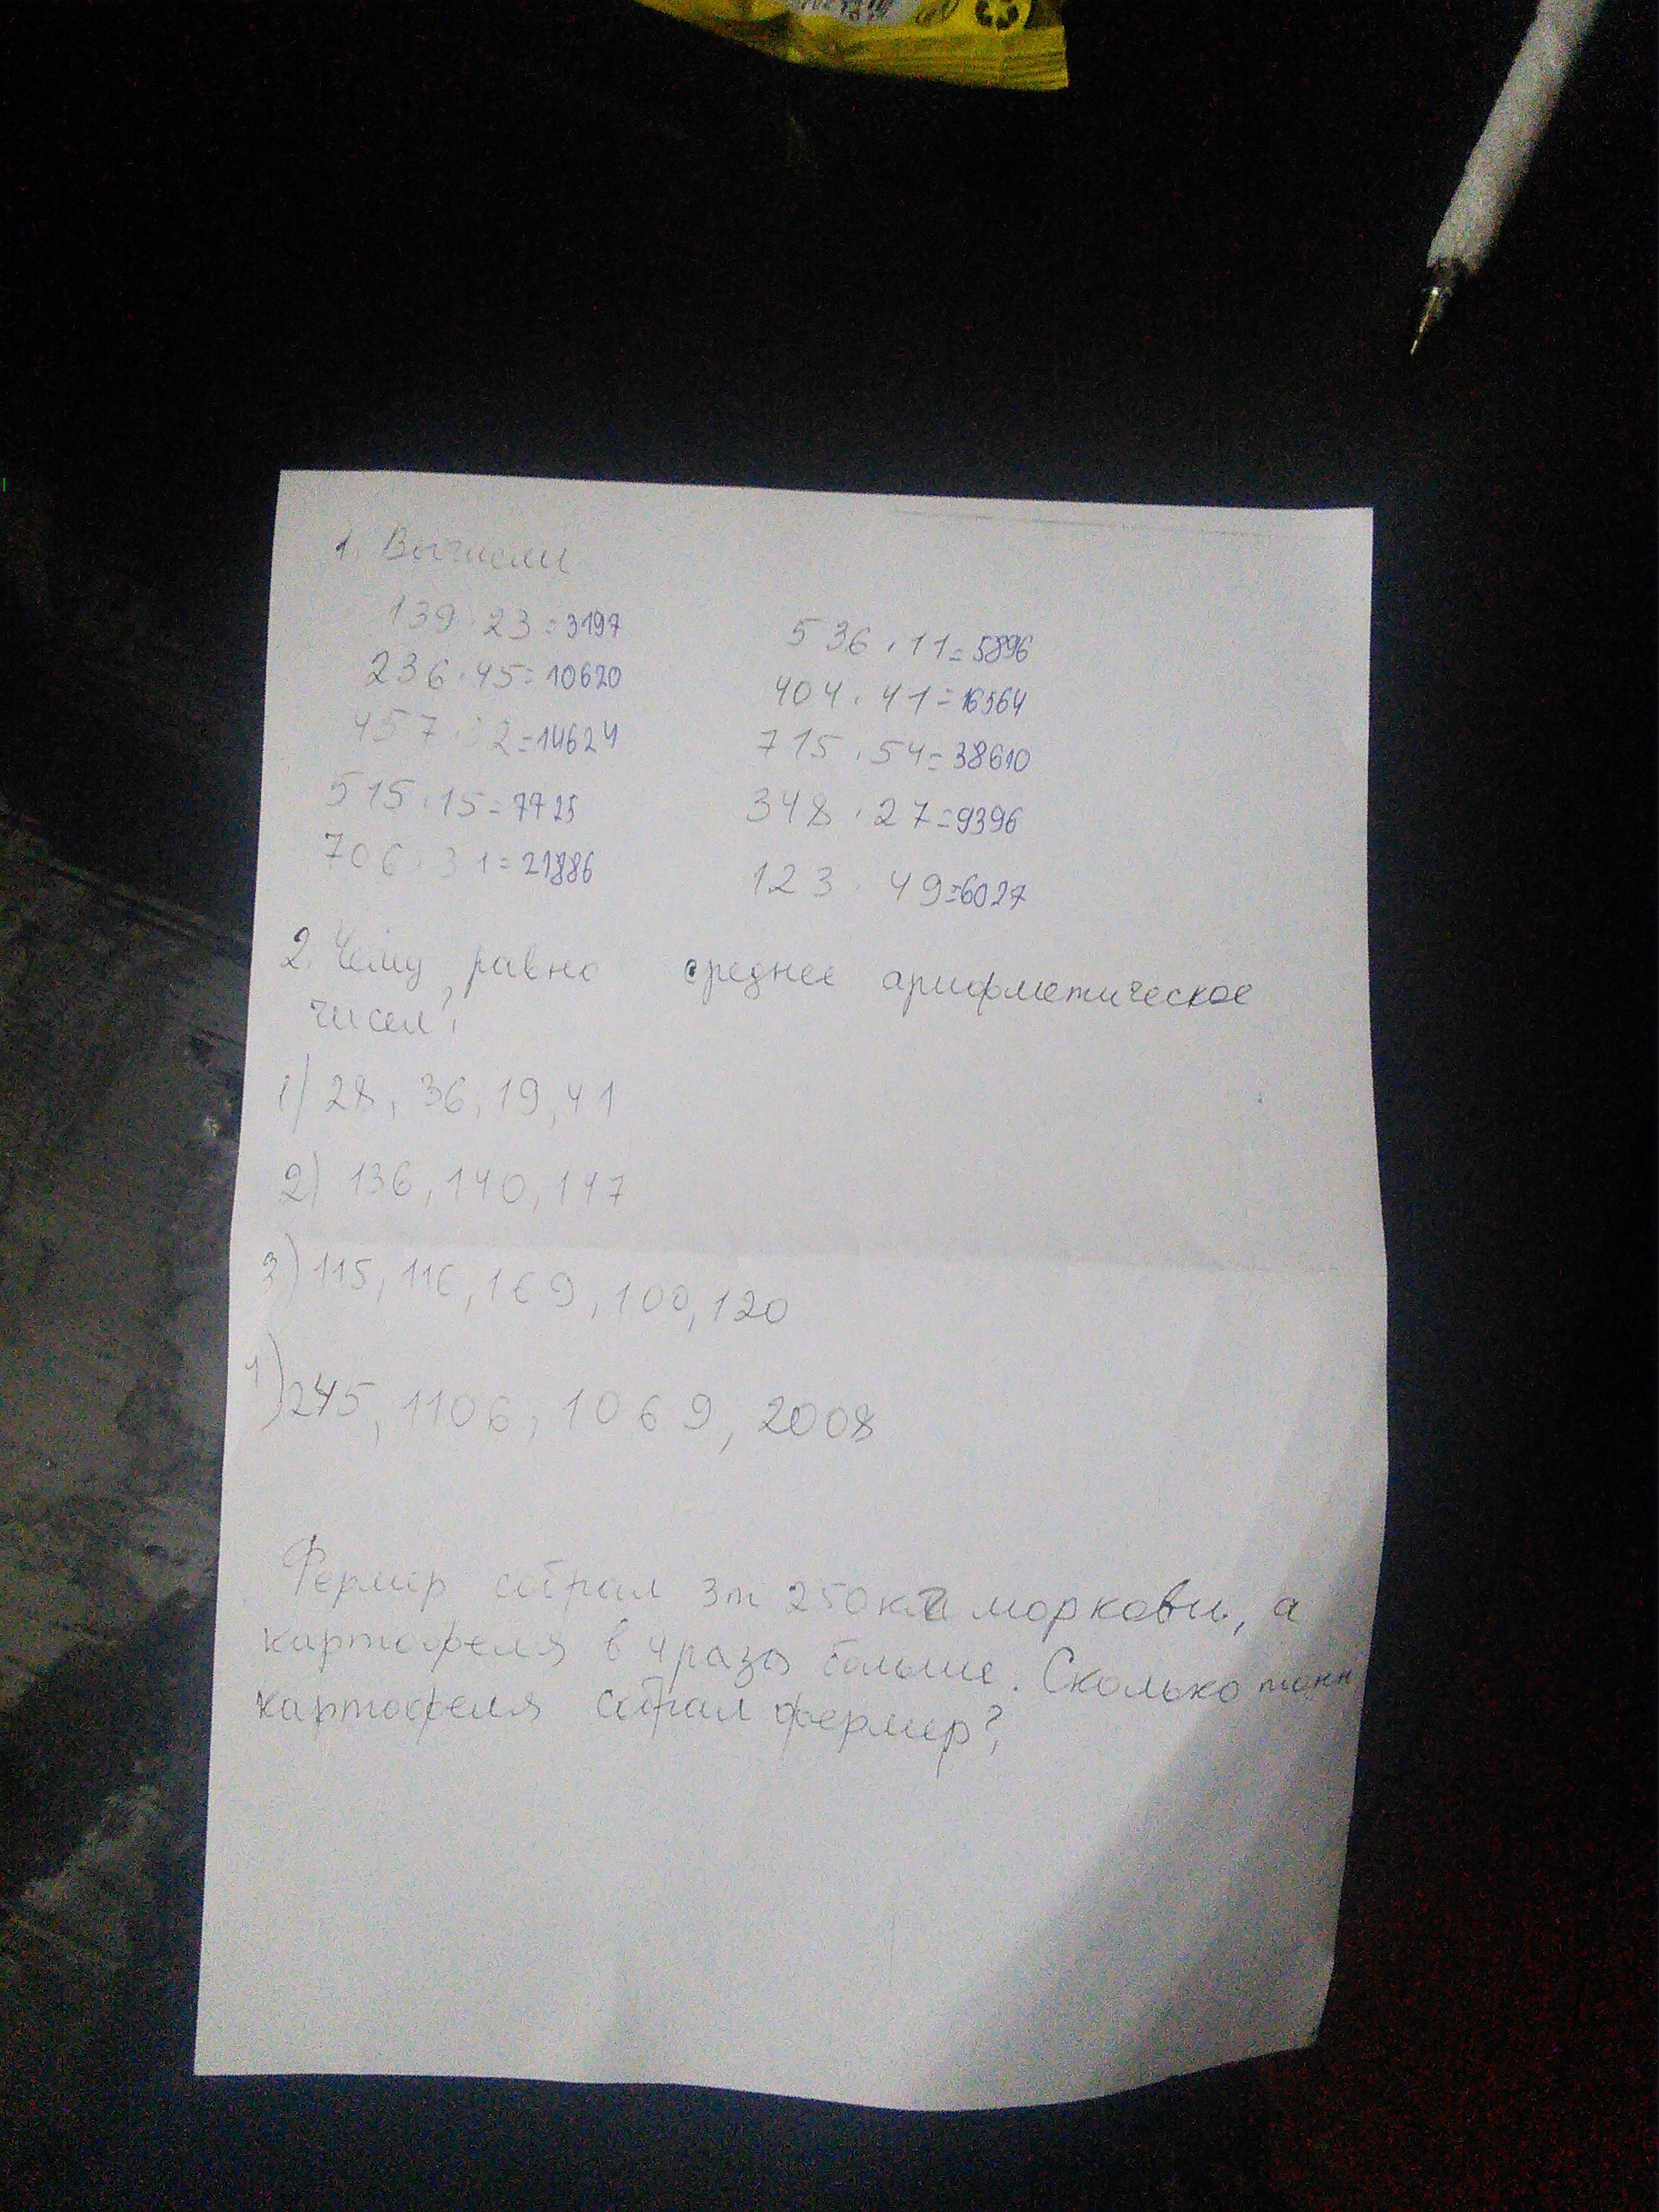 1. Вычисли
139 · 23 = 3197
536 · 11 = 5896
236 · 45 = 10620
404 · 41 = 16564
457 · 32 = 14624
715 · 54 = 38610
515 · 15 = 7725
348 · 27 = 9396
706 · 31 = 21886
123 · 49 = 6027
2. Чему равно среднее арифметическое
чисел?
1) 28, 36, 19, 41
2) 136, 140, 147
3) 115, 116, 169, 100, 120
4) 245, 1106, 1069, 2008
Фермер собрал 3т 250кг моркови, а
картофеля в 4 раза больше. Сколько тонн
картофеля собрал фермер?